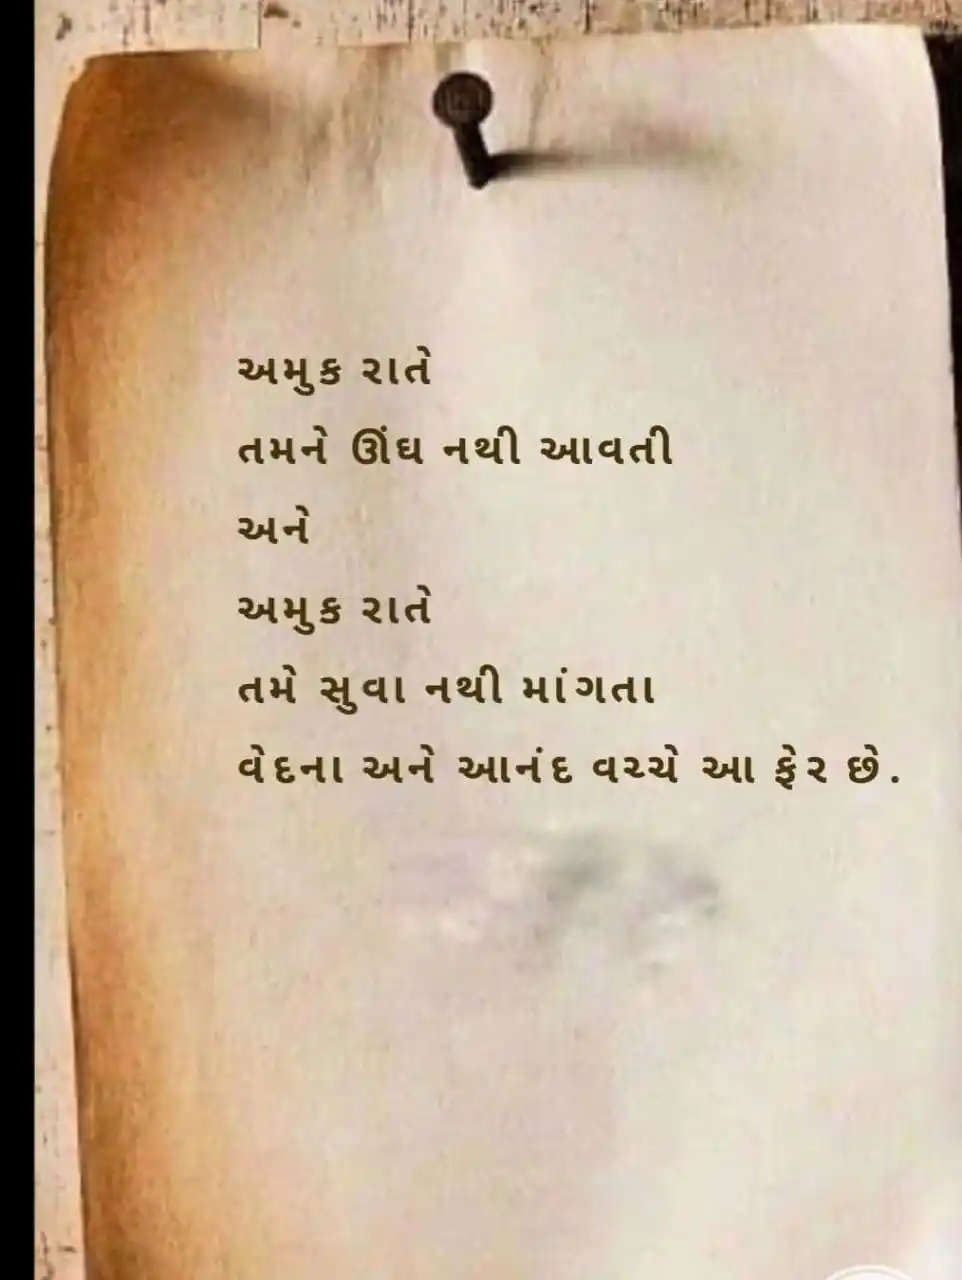 અમુક રાતે
તમને ઊંઘ નથી આવતી
અને
અમુક રાતે
તમે સુવા નથી માંગતા
વેદના અને આનંદ વચ્ચે આ ફેર છે.